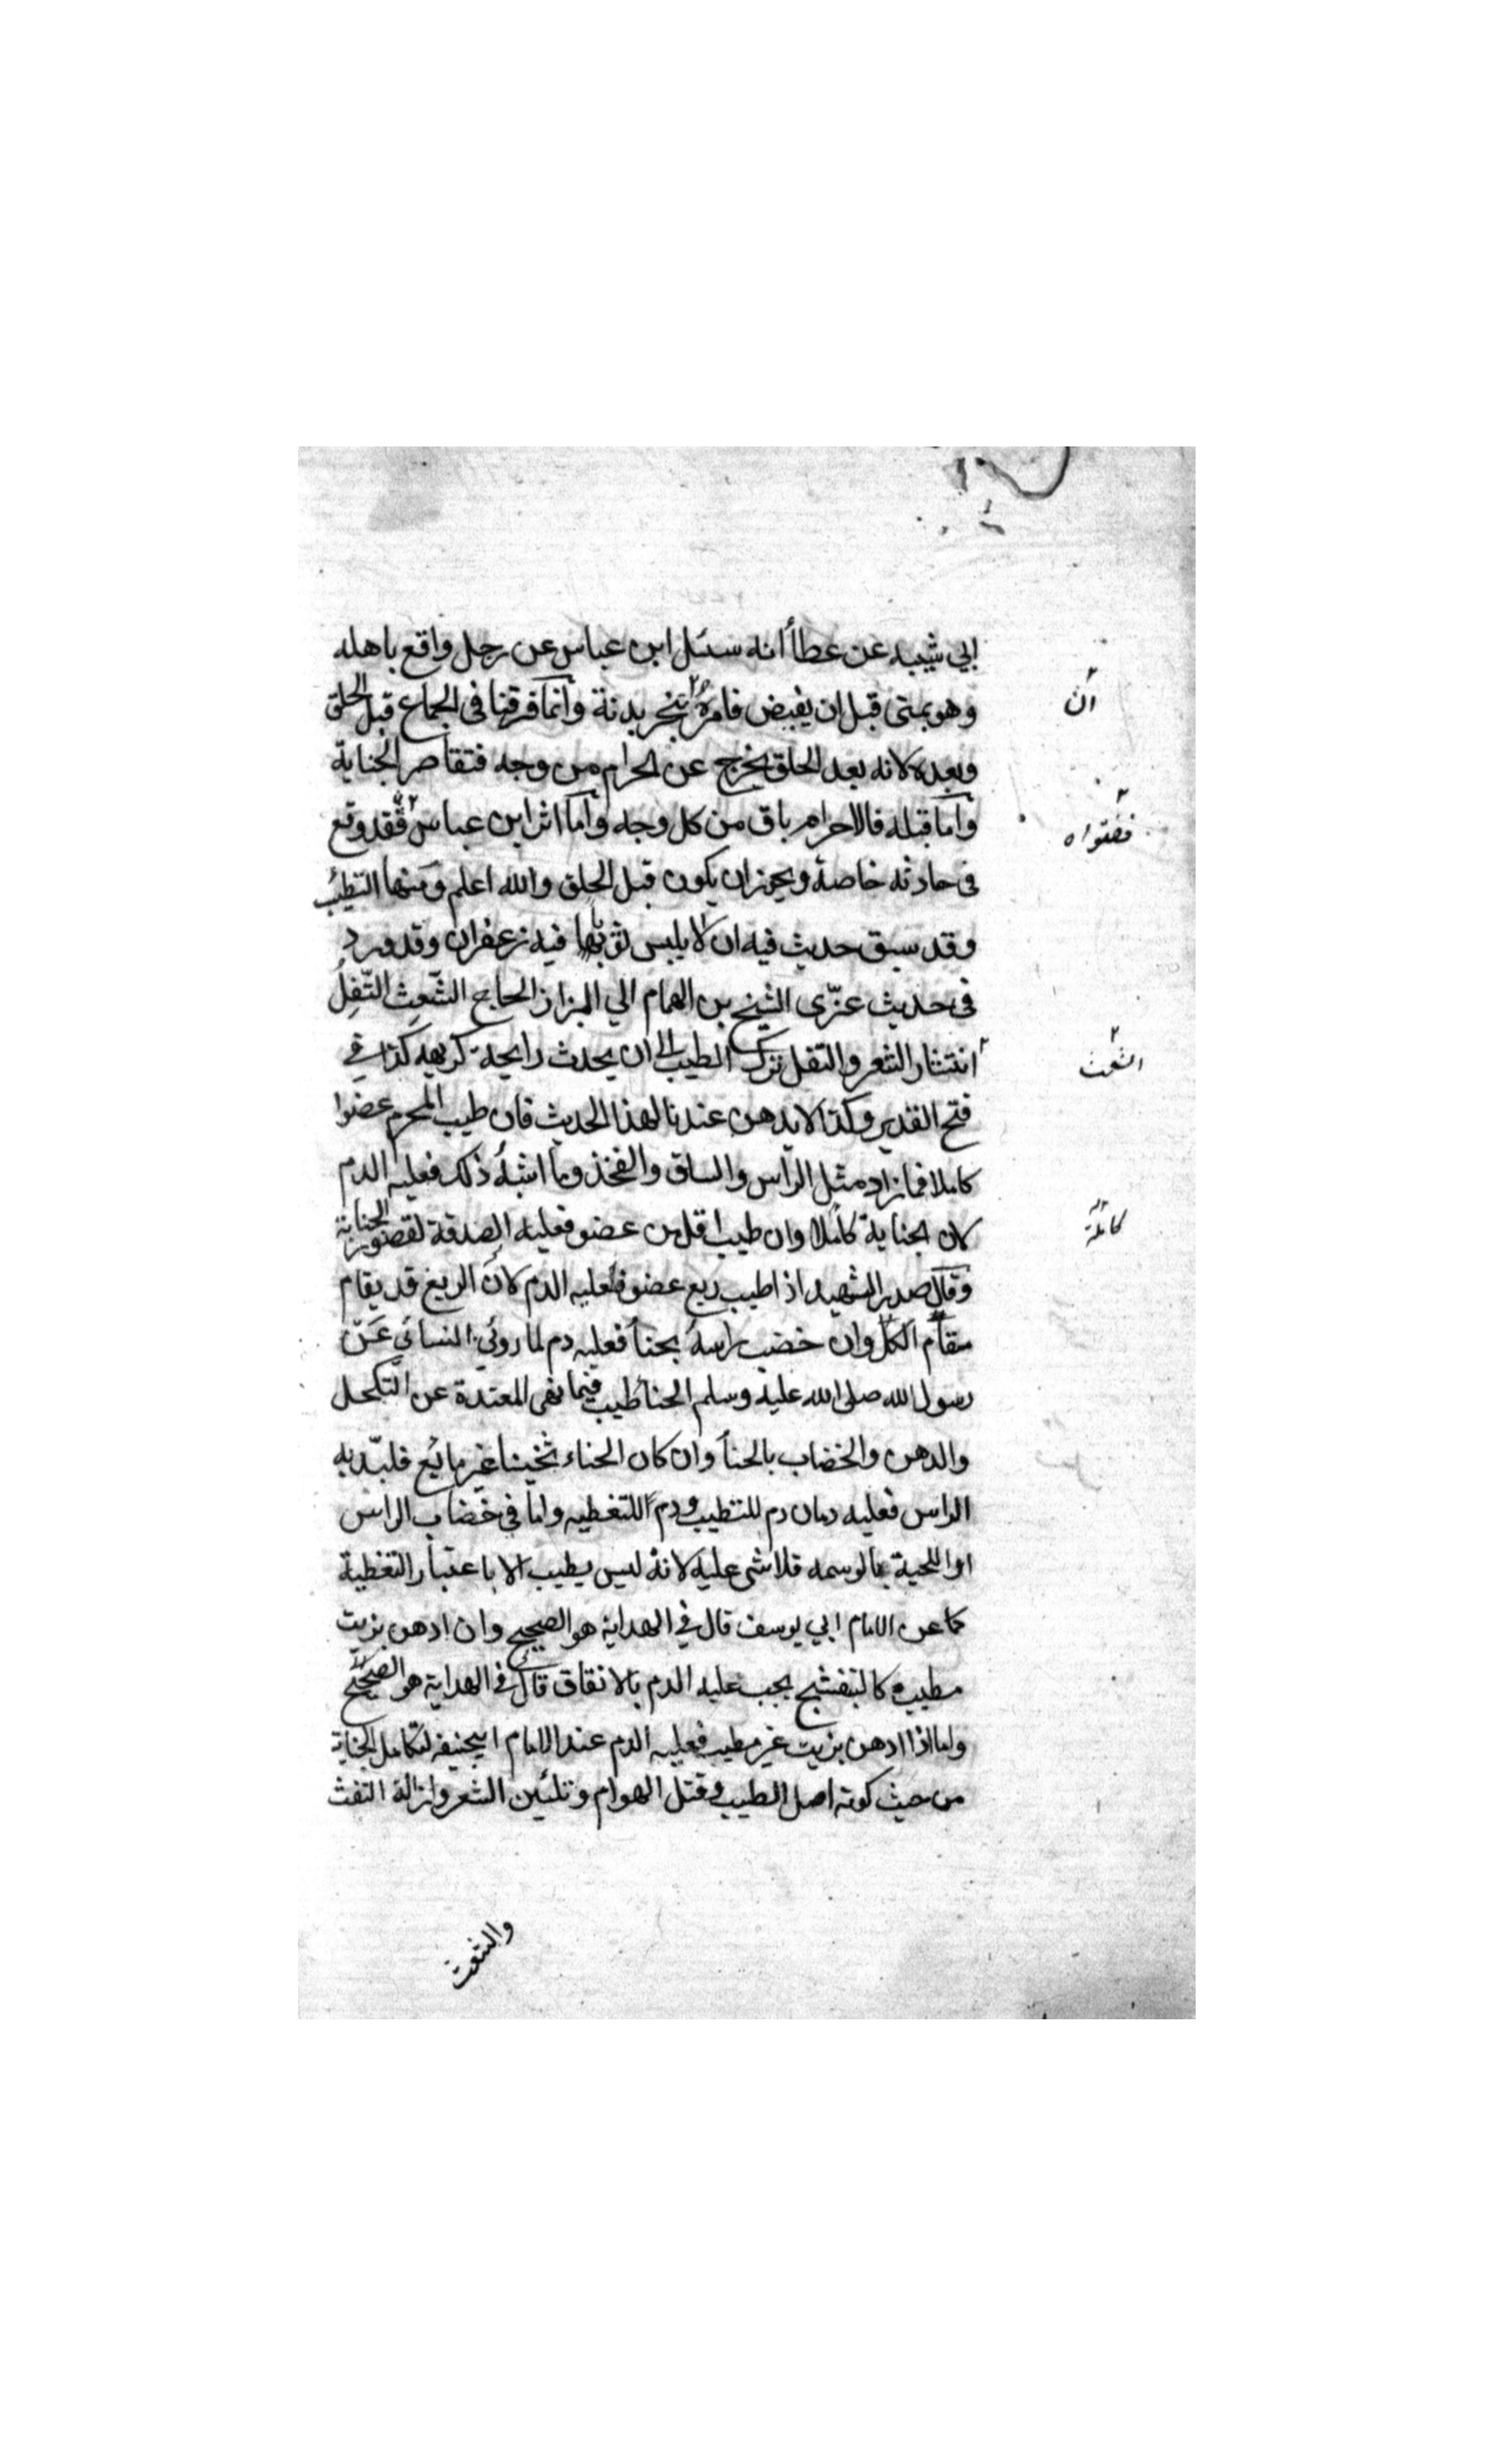 ابي شيبه عن عطأ انه سئل ابن عباس عن رجل واقع باهله
وهو بمنى قبل ان يفيض فامره بنحر بدنة وانما فرقنا في الجماع قبل الحلق
ان
وبعده لانه بعد الحلق يخرج عن الحرام من وجه فتقاصر الجناية
واما قبله فالاحرام باق من كل وجه واما اثر ابن عباس فقد وقع
ففتواه
في حادثه خاصة ويجوز ان يكون قبل الحلق والله اعلم ومنها التطيب
وقد سبق حديث فيه ان لا يلبس ثوبا فيه زعفران وقد ورد
في حديث عزّى الشيخ بن الهمام الي البزاز الحاج الشّعِث التّفِلُ
انتشار الشعر والتفل ترك الطيب الى ان يحدث رايحة كريهه كذا في
الشعث
فتح القدير وكذا لا يدهن عندنا لهذا الحديث فان طيب المحرم عضوا
كاملا فمازاد مثل الرأس والساق والفخذ وما اشبه ذلك فعليه الدم
لان الجناية كاملا وان طيب اقل من عضو فعليه الصدقة لقصور الجناية
كاملة
وقال صدر الشهيد اذا طيب ربع عضو فعليه الدم لان الربع قد يقام
مقام الكل وان خضب راسه بحنأ فعليه دم لما روي النسائي عن
رسول الله صلى الله عليه وسلم الحنأ طيب فيما نهى المعتدة عن التكحل
والدهن والخضاب بالحنأ وان كان الحناء ثخينا غير مائع فلبّد به
الراس فعليه دمان دم للتطيب ودم للتغطيه واما في خضاب الراس
او اللحية بالوسمه فلا شى عليه لانه ليس بطيب الا باعتبار التغطية
كما عن الامام ابي يوسف قال في الهداية هو الصحيح وان ادهن بزيت
مطيب كالبنفشج يجب عليه الدم بالاتفاق قال في الهداية هو الصحيح
واما اذا ادهن بزيت غير مطيب فعليه الدم عند الامام ابيحنيفه لتكامل الجناية
من حيث كونه اصل الطيب وقتل الهوام وتلئين الشعر وازالة التفث
والشعث